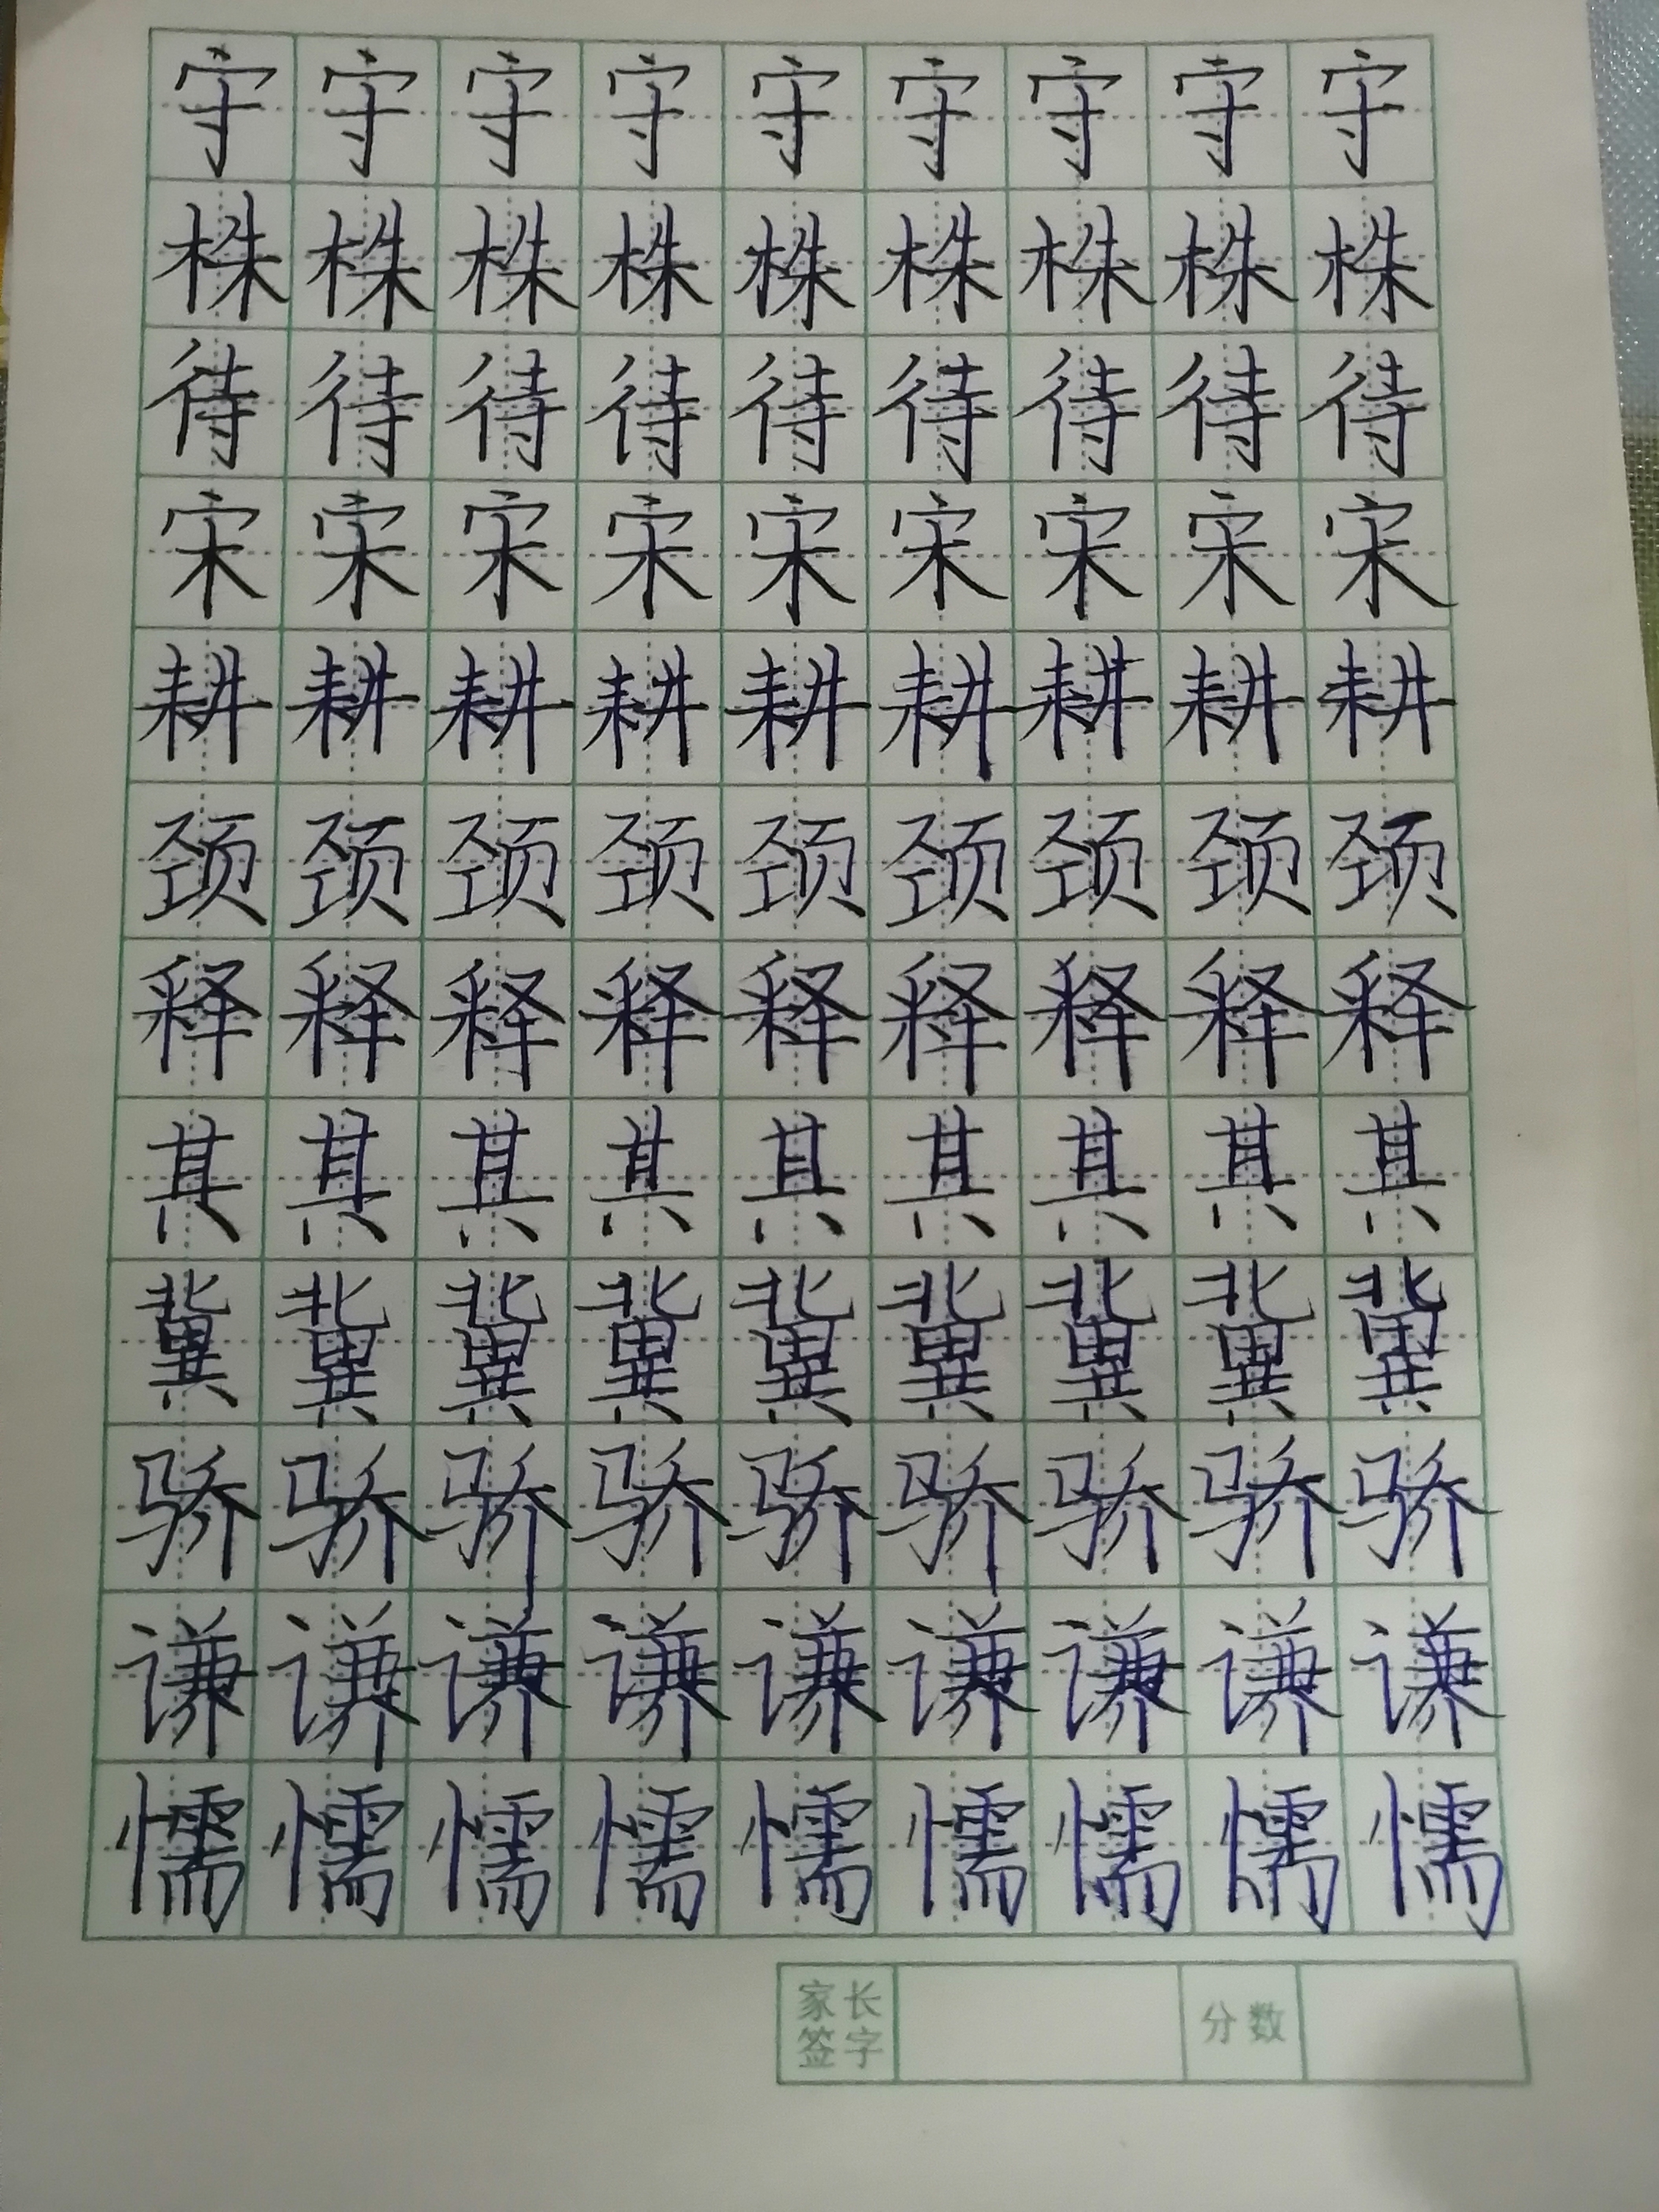 守守守守守守守守守
株株株株株株株株株
待待待待待待待待待
宋宋宋宋宋宋宋宋宋
耕耕耕耕耕耕耕耕耕
颈颈颈颈颈颈颈颈颈
释释释释释释释释释
其其其其其其其其其
冀冀冀冀冀冀冀冀冀
骄骄骄骄骄骄骄骄骄
谦谦谦谦谦谦谦谦谦
懦懦懦懦懦懦懦懦懦
家长签字 分数